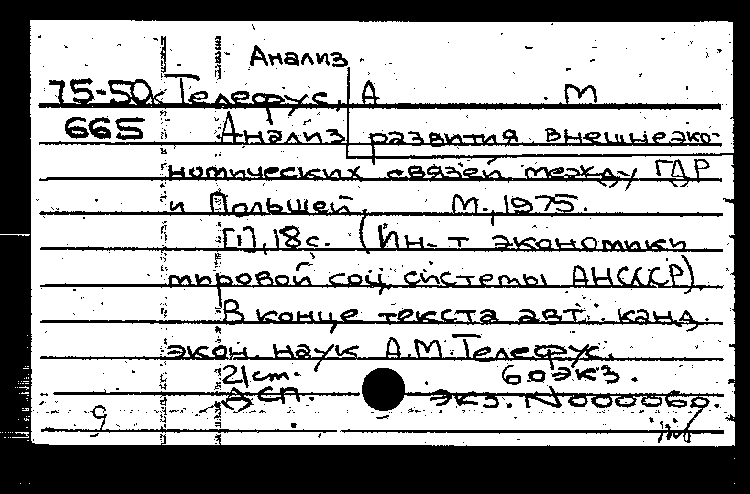 Анализ
75-50к Телефус, А М
665 Анализ развития внешнеэко-
номических связей между ГДР
и Польшей, М., 1975.
[1], 18с. (Ин-т экономики
мировой соц. системы АНСССР).
В конце текста авт. канд.
экон. наук А.М.Телефус.
21 cm. 60экз.
ДСП. экз. N000060.
9